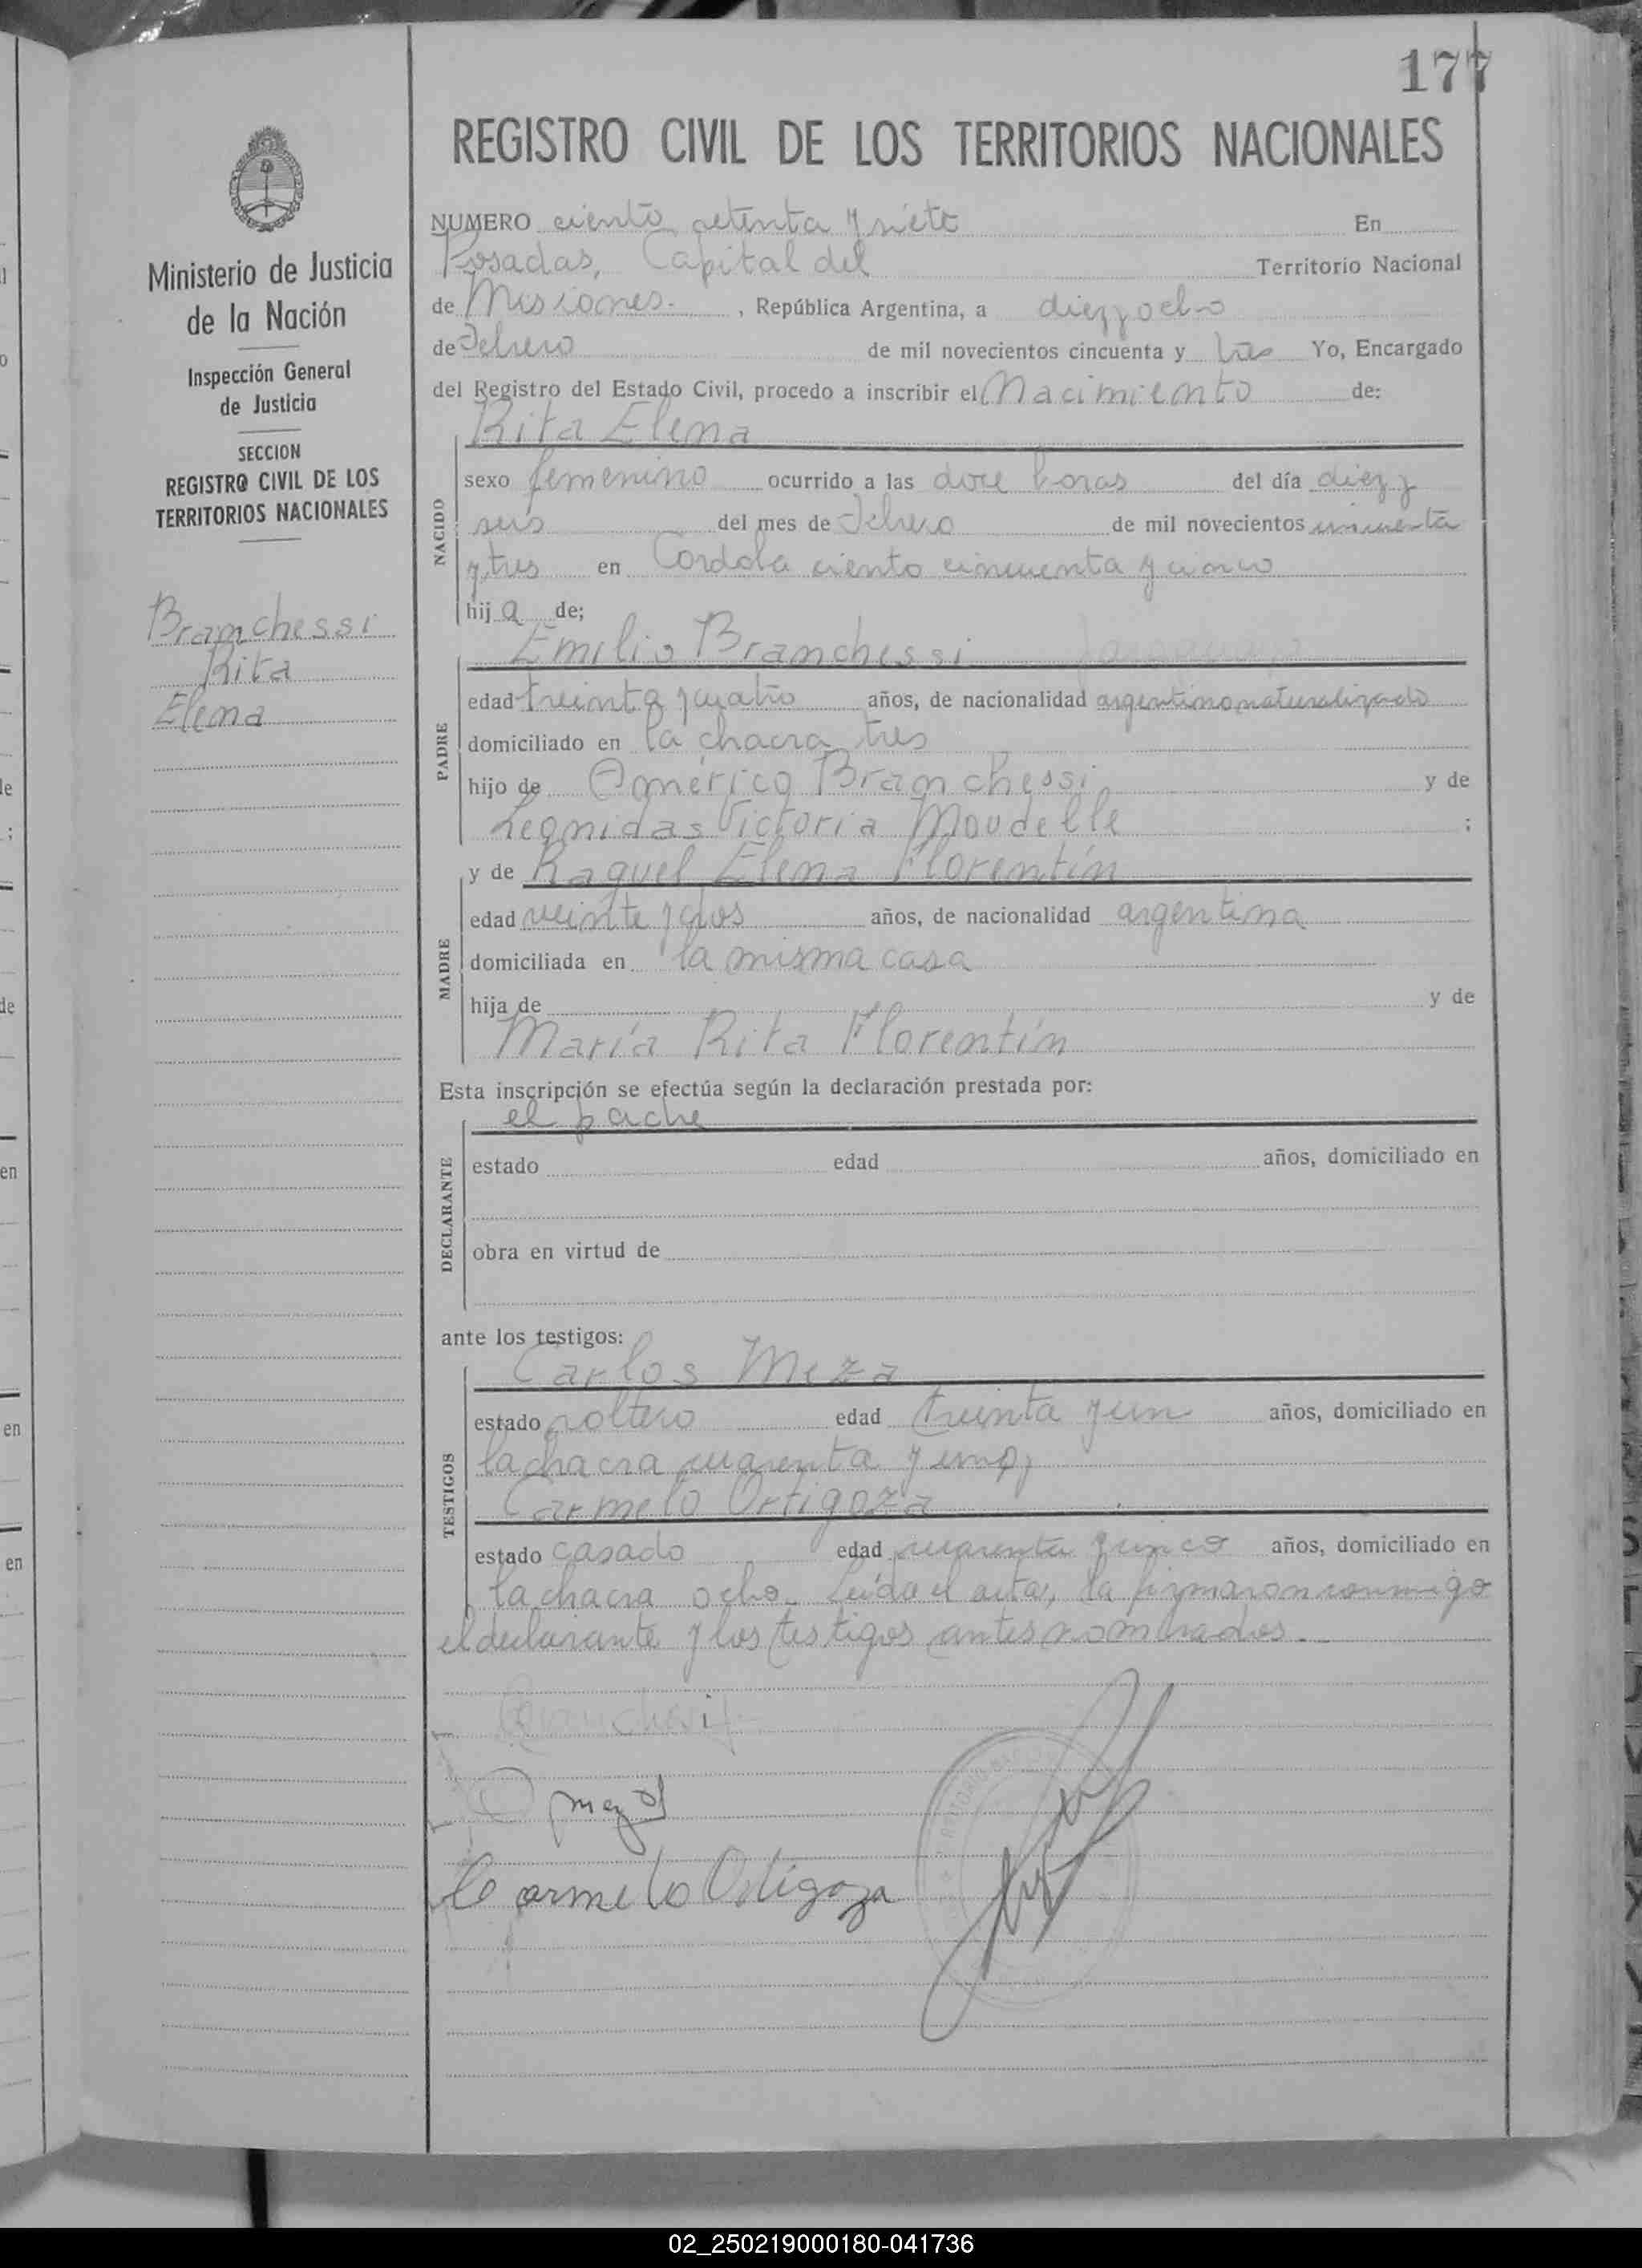 177
REGISTRO CIVIL DE LOS TERRITORIOS NACIONALES
Ministerio de Justicia
de la Nación
Inspección General
de Justicia
SECCION
REGISTRO CIVIL DE LOS
TERRITORIOS NACIONALES
Branchessi
Rita
Elena
NUMERO ciento setenta y siete En
Posadas, Capital del Territorio Nacional
de Misiones. , República Argentina, a diez y ocho
de Febrero de mil novecientos cincuenta y tres Yo, Encargado
del Registro del Estado Civil, procedo a inscribir el Nacimiento de:
Rita Elena
NACIDO
sexo femenino ocurrido a las doce horas del día diez y
seis del mes de Febrero de mil novecientos cincuenta
y tres en Cordoba ciento cincuenta y cinco
hij a de;
Emilio Branchessi
PADRE
edad treinta y cuatro años, de nacionalidad argentino naturalizado
domiciliado en la chacra tres
hijo de Américo Branchessi y de
Leonidas Victoria Moudelle ;
y de Raquel Elena Florentín
MADRE
edad veinte y dos años, de nacionalidad argentina
domiciliada en la misma casa
hija de y de
María Rita Florentín
Esta inscripción se efectúa según la declaración prestada por:
el padre
DECLARANTE
estado edad años, domiciliado en
obra en virtud de
ante los testigos:
Carlos Meza
TESTIGOS
estado soltero edad treinta y un años, domiciliado en
la chacra cuarenta y uno,
Carmelo Ortigoza
estado casado edad cuarenta y cinco años, domiciliado en
la chacra ocho. Leída el acta, la firmaron conmigo
el declarante y los testigos antes nombrados.
Carmelo Ortigoza
02_250219000180-041736